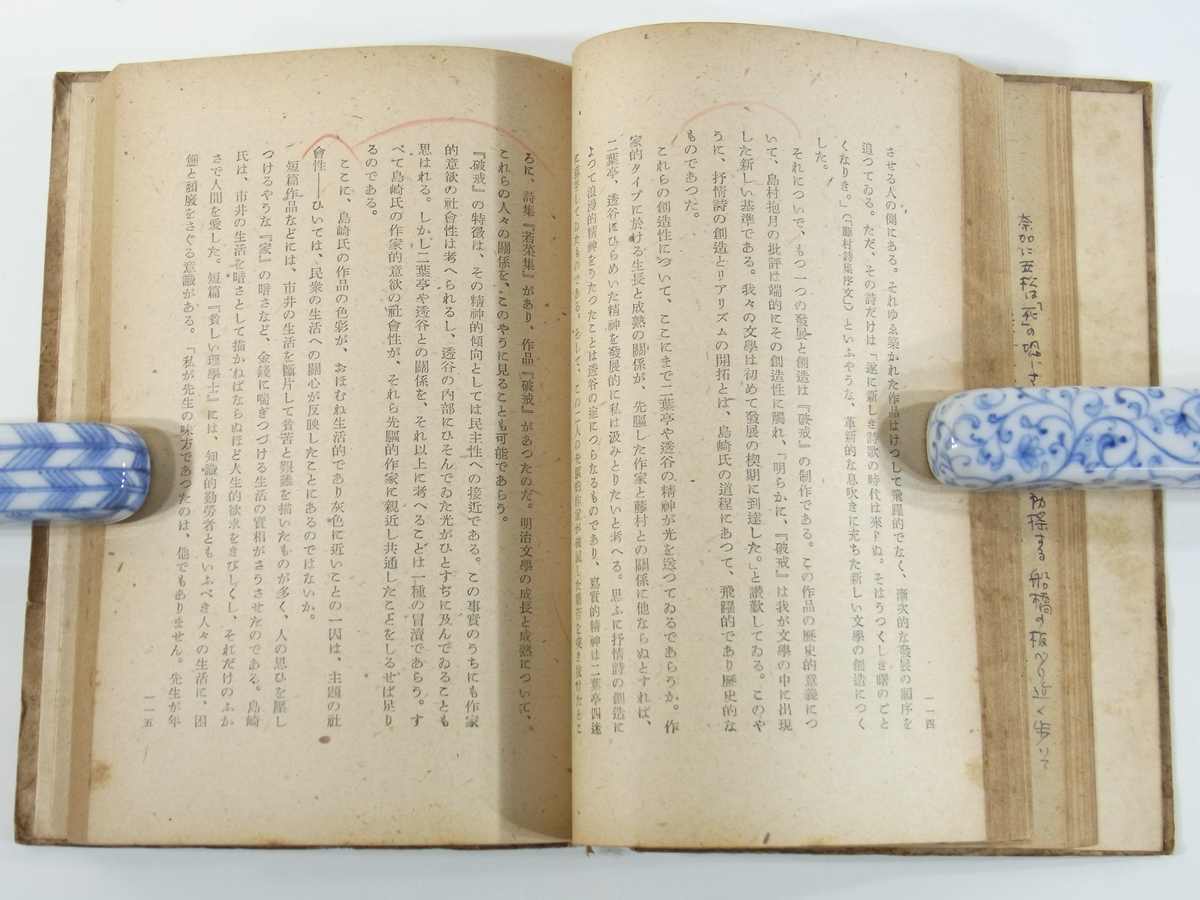 させる人の側にある。それゆゑ築かれた作品はけつして飛躍的でなく、漸次的な發展の順序を
追つてゐる。ただ、その詩だけは「遂に新しき詩歌の時代は來りぬ。そはうつくしき曙のごと
くなりき。」(「藤村詩集序文」)といふやうな、革新的な息吹きに充ちた新しい文學の創造につく
した。
それについで、もつ一つの發展と創造は『破戒』の制作である。この作品の歷史的意義につ
いて、島村抱月の批評は端的にその創造性に觸れ、「明らかに、『破戒』は我が文學の中に出現
した新しい基準である。我々の文學は初めて發展の楔期に到達した。」と讃歎してゐる。このや
うに、抒情詩の創造とリアリズムの開拓とは、島崎氏の道程にあつて、飛躍的であり歷史的な
ものであつた。
これらの創造性について、ここにまで二葉亭や透谷の精神が光を送つてゐるであらうか。作
家的タイプに於ける生長と成熟の關係が、先驅した作家と藤村との關係に他ならぬとすれば、
二葉亭、透谷にひらめいた精神を發展的に私は汲みとりたいと考へる。思ふに抒情詩の創造に
よつて浪漫的精神をうたつたことは透谷の座につらなるものであり、寫實的精神は二葉亭四迷
一一四
ろに、詩集『若菜集』があり、作品『破戒』があつたのだ。明治文學の成長と成熟について、
これらの人々の關係を、このやうに見ることも可能であらう。
『破戒』の特徵は、その精神的傾向としては民主性への接近である。この事實のうちにも作家
的意欲の社會性は考へられるし、透谷の內部にひそんでゐた光がひとすぢに及んでゐることも
思はれる。しかし二葉亭や透谷との關係を、それ以上に考へることは一種の冒瀆であらう。す
べて島崎氏の作家的意欲の社會性が、それら先驅的作家に親近し共通したことをしるせば足り
るのである。
ここに、島崎氏の作品の色彩が、おほむね生活的であり灰色に近いことの一因は、主題の社
會性――ひいては、民衆の生活への關心が反映したことにあるのではないか。
短篇作品などには、市井の生活を斷片して貧苦と艱難を描いたものが多く、人の思ひを壓し
つけるやうな『家』の暗さなど、金錢に喘ぎつづける生活の實相がさうさせたのである。島崎
氏は、市井の生活を暗さとして描かねばならぬほど人生的欲求をきびしくし、それだけのふか
さで人間を愛した。短篇『貧しい理學士』には、知識的勤勞者ともいふべき人々の生活に、困
憊と頽廢をさぐる意識がある。「私が先生の味方であつたのは、他でもありません。先生が年
一一五